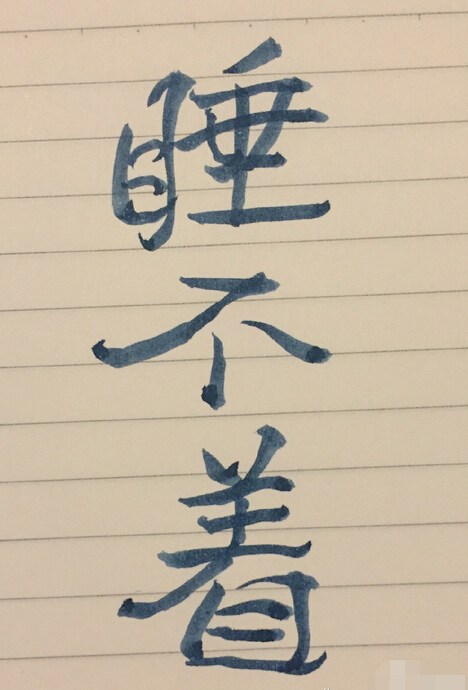 睡不着